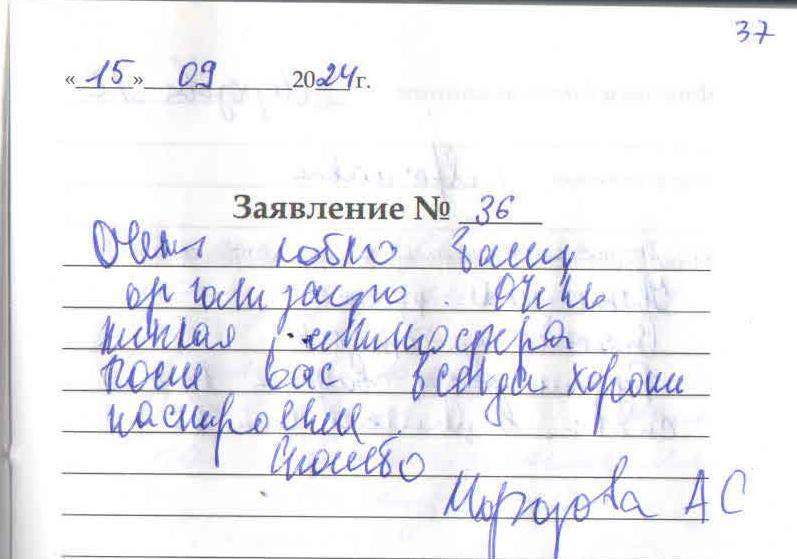 37
«15» 09 2024 г.
Заявление № 36
Очень люблю Вашу
организацию. Очень
теплая атмосфера
после вас всегда хорошее
настроение.
Спасибо
Морозова А С